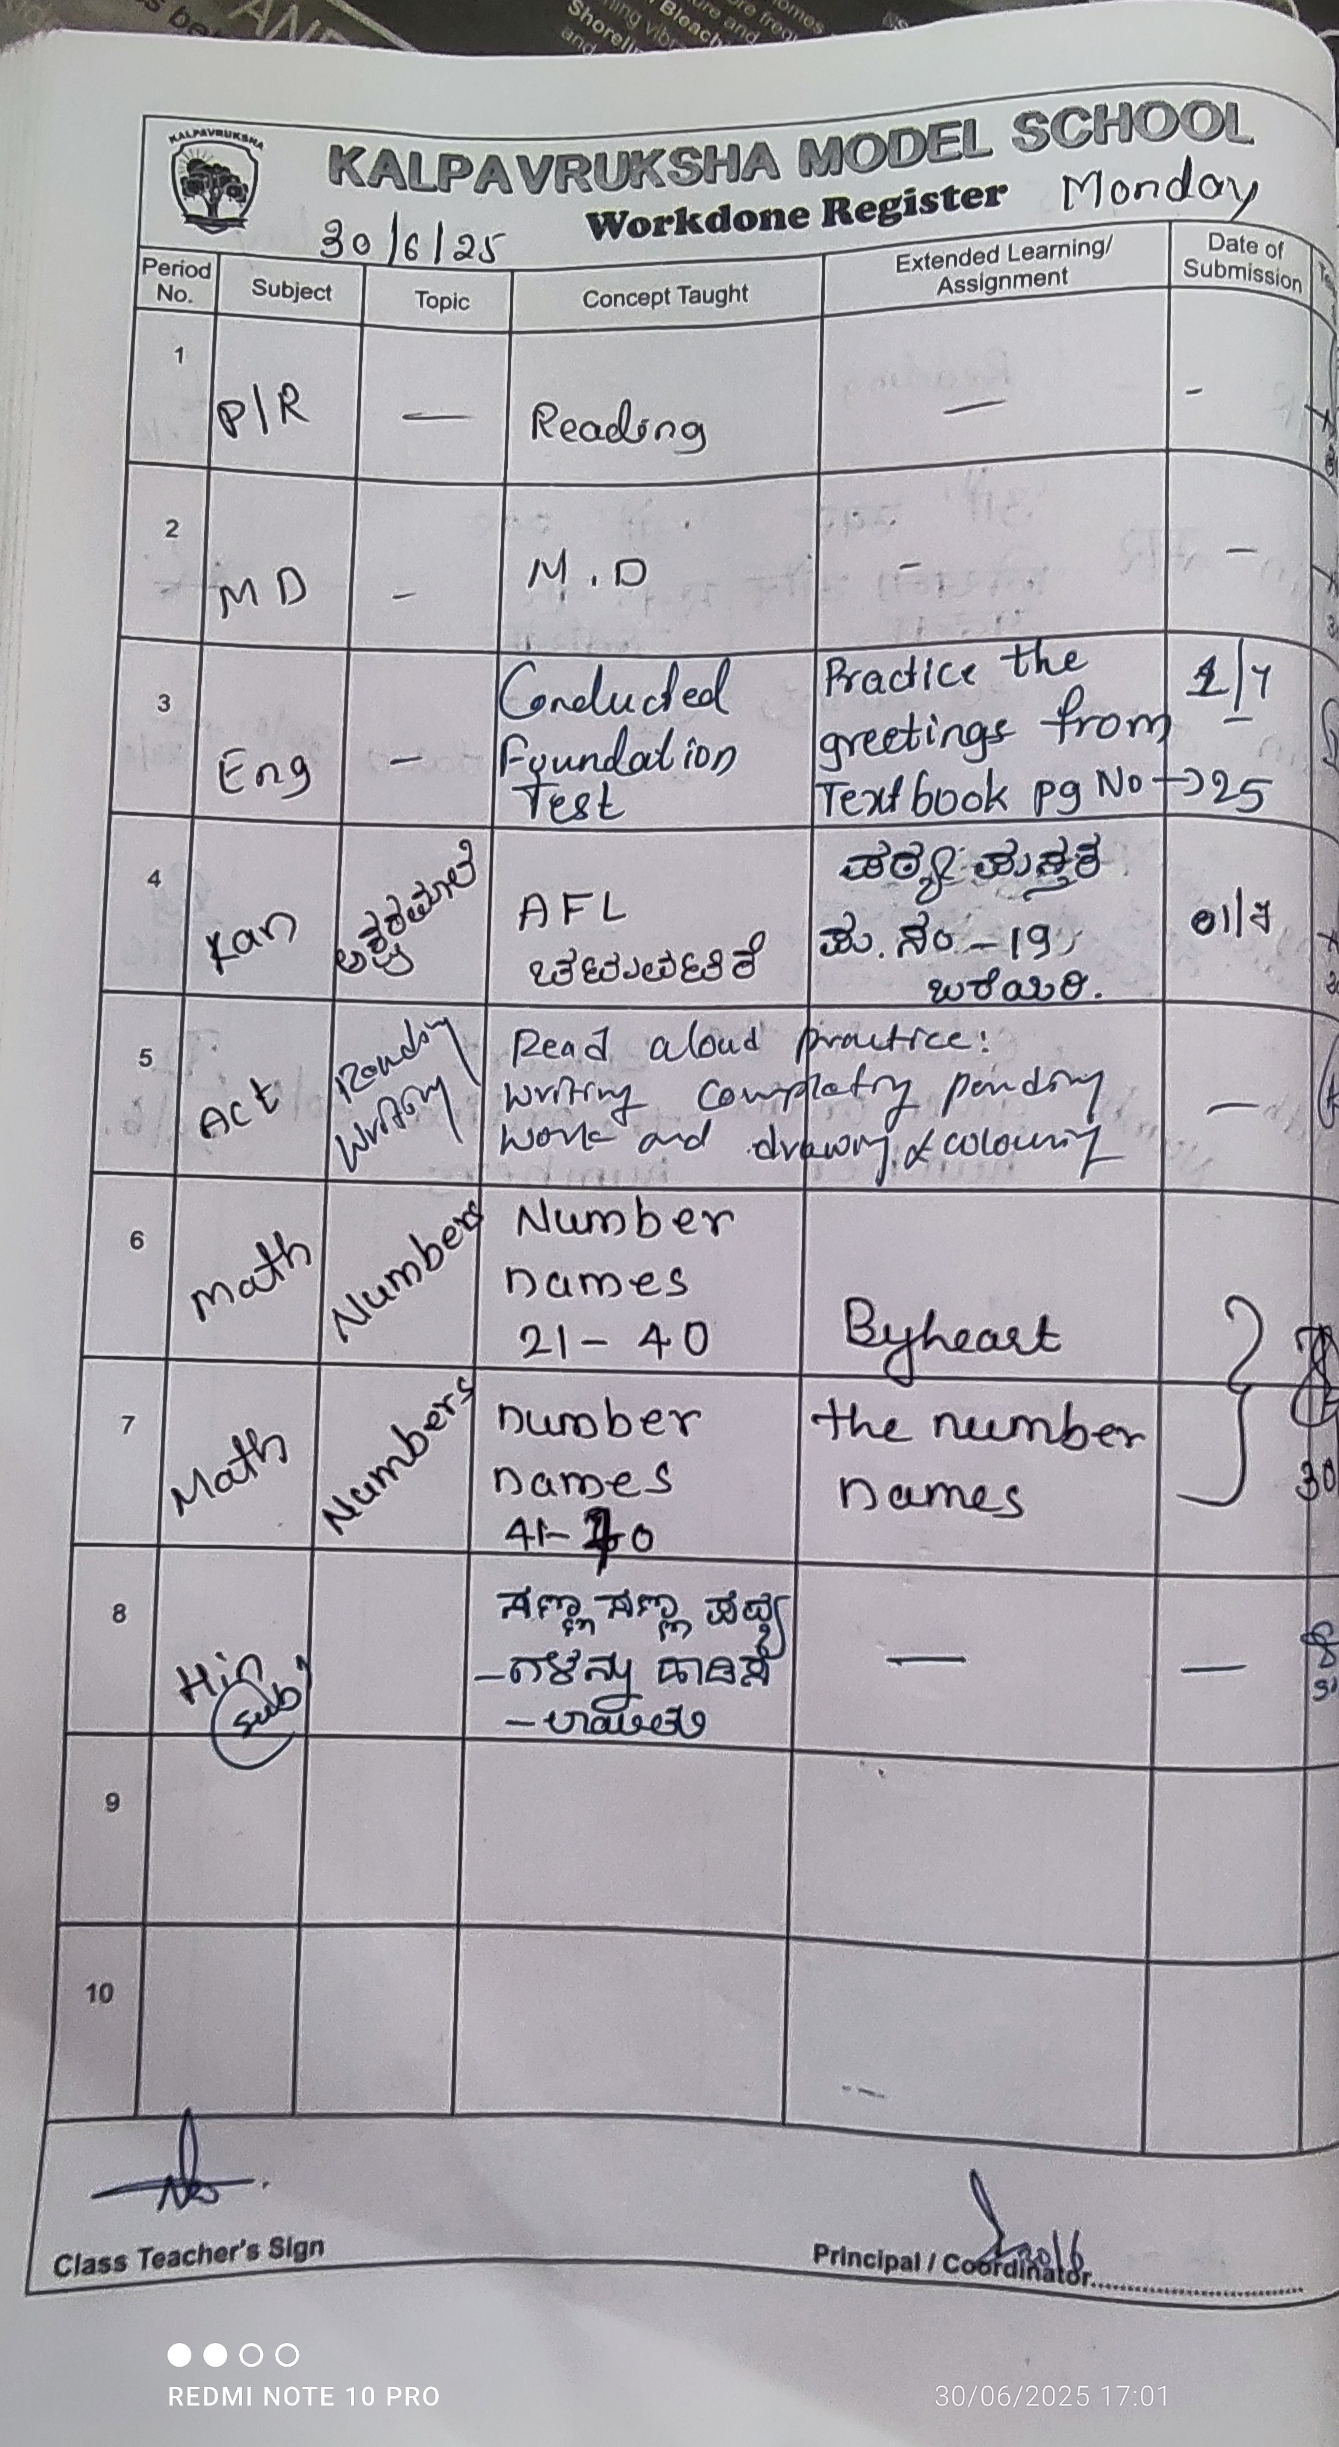 KALPAVRUKSHA
KALPAVRUKSHA MODEL SCHOOL
Workdone Register Monday
30/6/25
Period No. Subject Topic Concept Taught Extended Learning/ Assignment Date of Submission
1 P/R — Reading — -
2 MD - M.D - —
3 Eng — Conducted Foundation Test Practice the greetings from Textbook pg No → 25 1/7
4 Kan ಅಕ್ಷರಮಾಲೆ AFL ಚಟುವಟಿಕೆ ಪಠ್ಯ ಪುಸ್ತಕ ಪು.ಸಂ-19 ಬರೆಯಿರಿ. 01/7
5 Act Reading Writing Read aloud practice: writing completing pending work and drawing & colouring —
6 Math Numbers Number names 21-40 Byheart
7 Math Numbers number names 41- the number names
8 Hin sub ಸಣ್ಣ ಸಣ್ಣ -ಗಳನ್ನು — —
9
10
Class Teacher's Sign
Principal / Coordinator
REDMI NOTE 10 PRO
30/06/2025 17:01